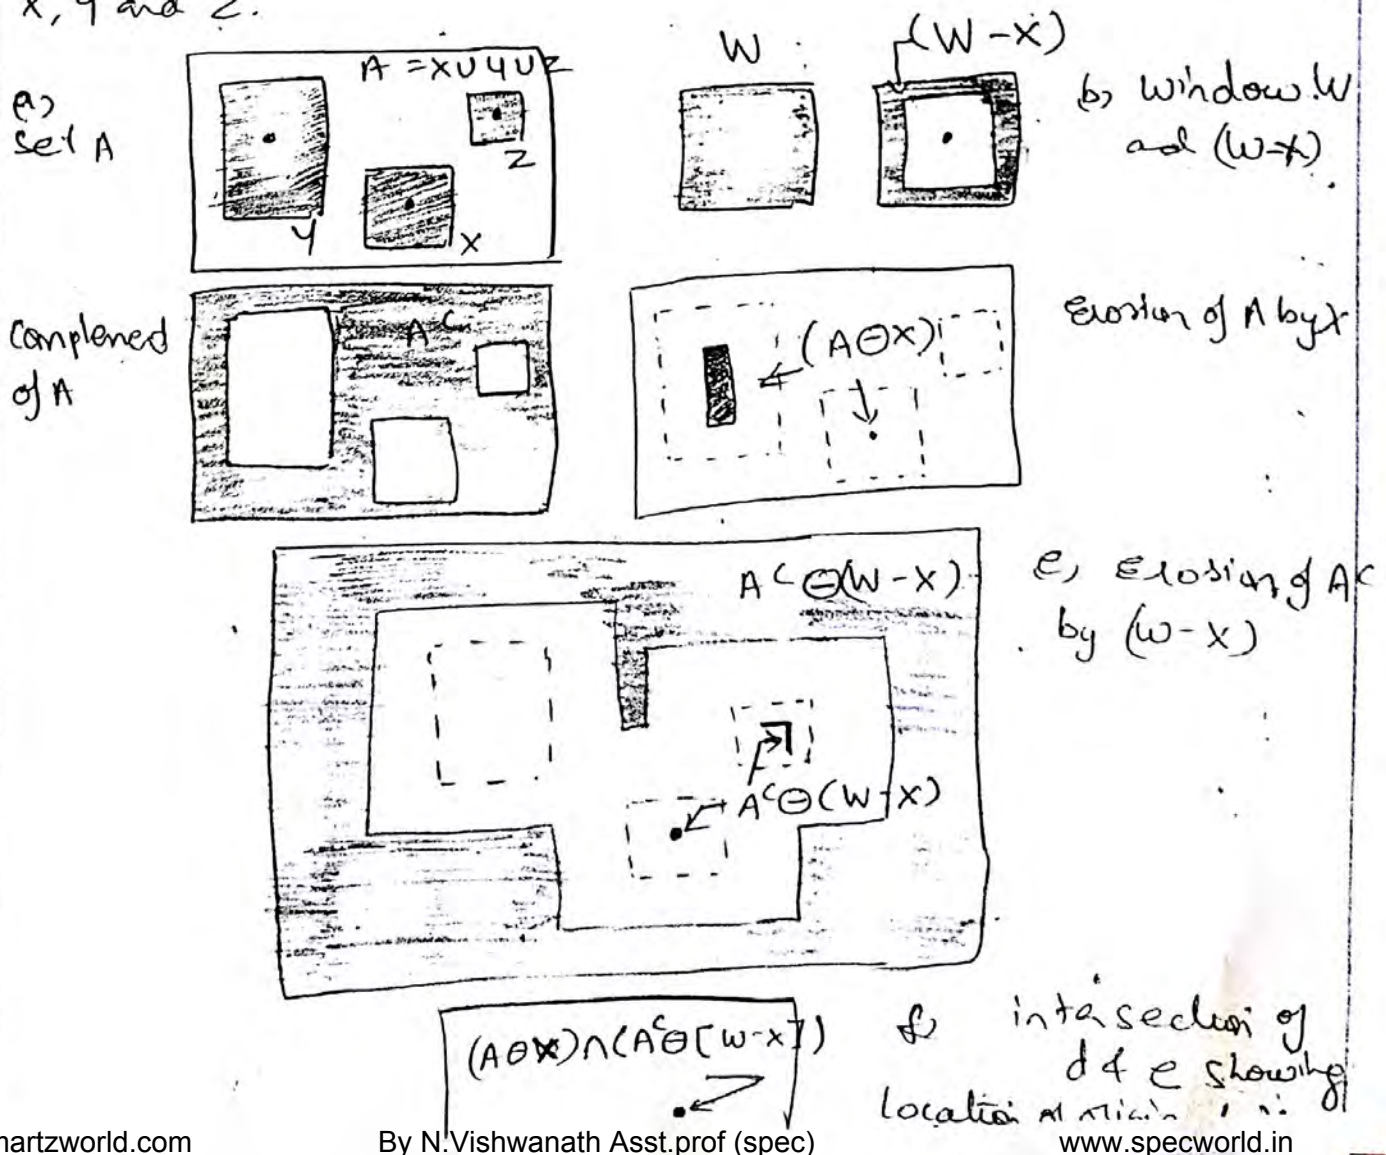 X, Y and Z.
a) set A
A = X∪Y∪Z
Y
X
Z
W
(W-X)
b) window W
and (W-X)
complemed
of A
A^c
(A⊖X)
Erosion of A by X
A^c ⊖(W-X)
e, Erosion of A^c
by (W-X)
A^c⊖(W-X)
(A⊖X)∩(A^c⊖[W-X])
f) intersection of
d & e showing
location
hartzworld.com
By N.Vishwanath Asst.prof (spec)
www.specworld.in